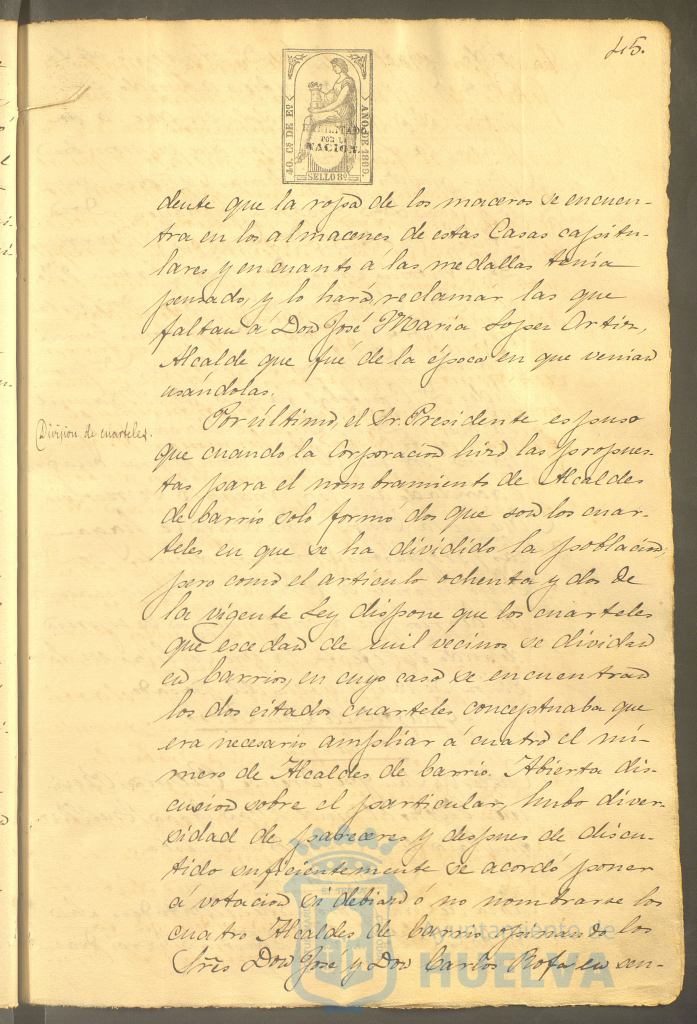 45.
40. Cs. DE Eº.
AÑO DE 1869.
HABILITADO
POR LA
NACION.
SELLO 8º
dente que la ropa de los maceros se encuen-
tra en los almacenes de estas Casas capitu-
lares y en cuanto á las medallas tenia
pensado, y lo hará, reclamar las que
faltan á Don José Maria Lopez
Alcalde que fué de la época en que venian
usándolas.
Division de cuarteles.
Por último, el Sr. Presidente espuso
que cuando la Corporacion hizo las propues-
tas para el nombramiento de Alcaldes
de barrio solo formó dos que son los cuar-
teles en que se ha dividido la poblacion,
pero como el articulo ochenta y dos de
la vigente Ley dispone que los cuarteles
que escedan de mil vecinos se dividan
en barrios, en cuyo caso se encuentran
los dos citados cuarteles conceptuaba que
era necesario ampliar á cuatro el nú-
mero de Alcaldes de barrio. Abierta dis-
cusion sobre el particular, hubo diver-
sidad de pareceres y despues de discu-
tido suficientemente se acordó poner
á votacion si debian ó no nombrarse los
cuatro Alcaldes de barrio opinando los
Sres Don José y Don Carlos Rofa en sen-
Ayuntamiento de
HUELVA